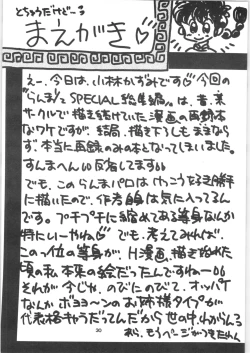 とちゅうだけどー
まえがき♡
えー、今日は、小林かずみです♡今回の
「らんま½ SPECIAL総集編」は、昔、某
サークルで描き続けていた漫画の再録本
なワケですが、結局、描き下ろしもままなら
ず、本当に再録のみの本となってしまいました。
すんまへんUU反省してますUU
でも、このらんまパロは、けっこう好き勝手
に描いたので、作者的には気に入ってるん
です。プチプチに縮めてある等身なんか
特にいーやね♡でも、考えてみれば、
この位の等身が、H漫画、描き始めた
頃の私本来の絵だったんですねーUU
それが今じゃ、のびにのびて、オッパイ
なんか ボヨ〜ンのお姉様タイプが
代表格キャラだってんだから世の中わからんネ
おら、もうページがつきたわん
30